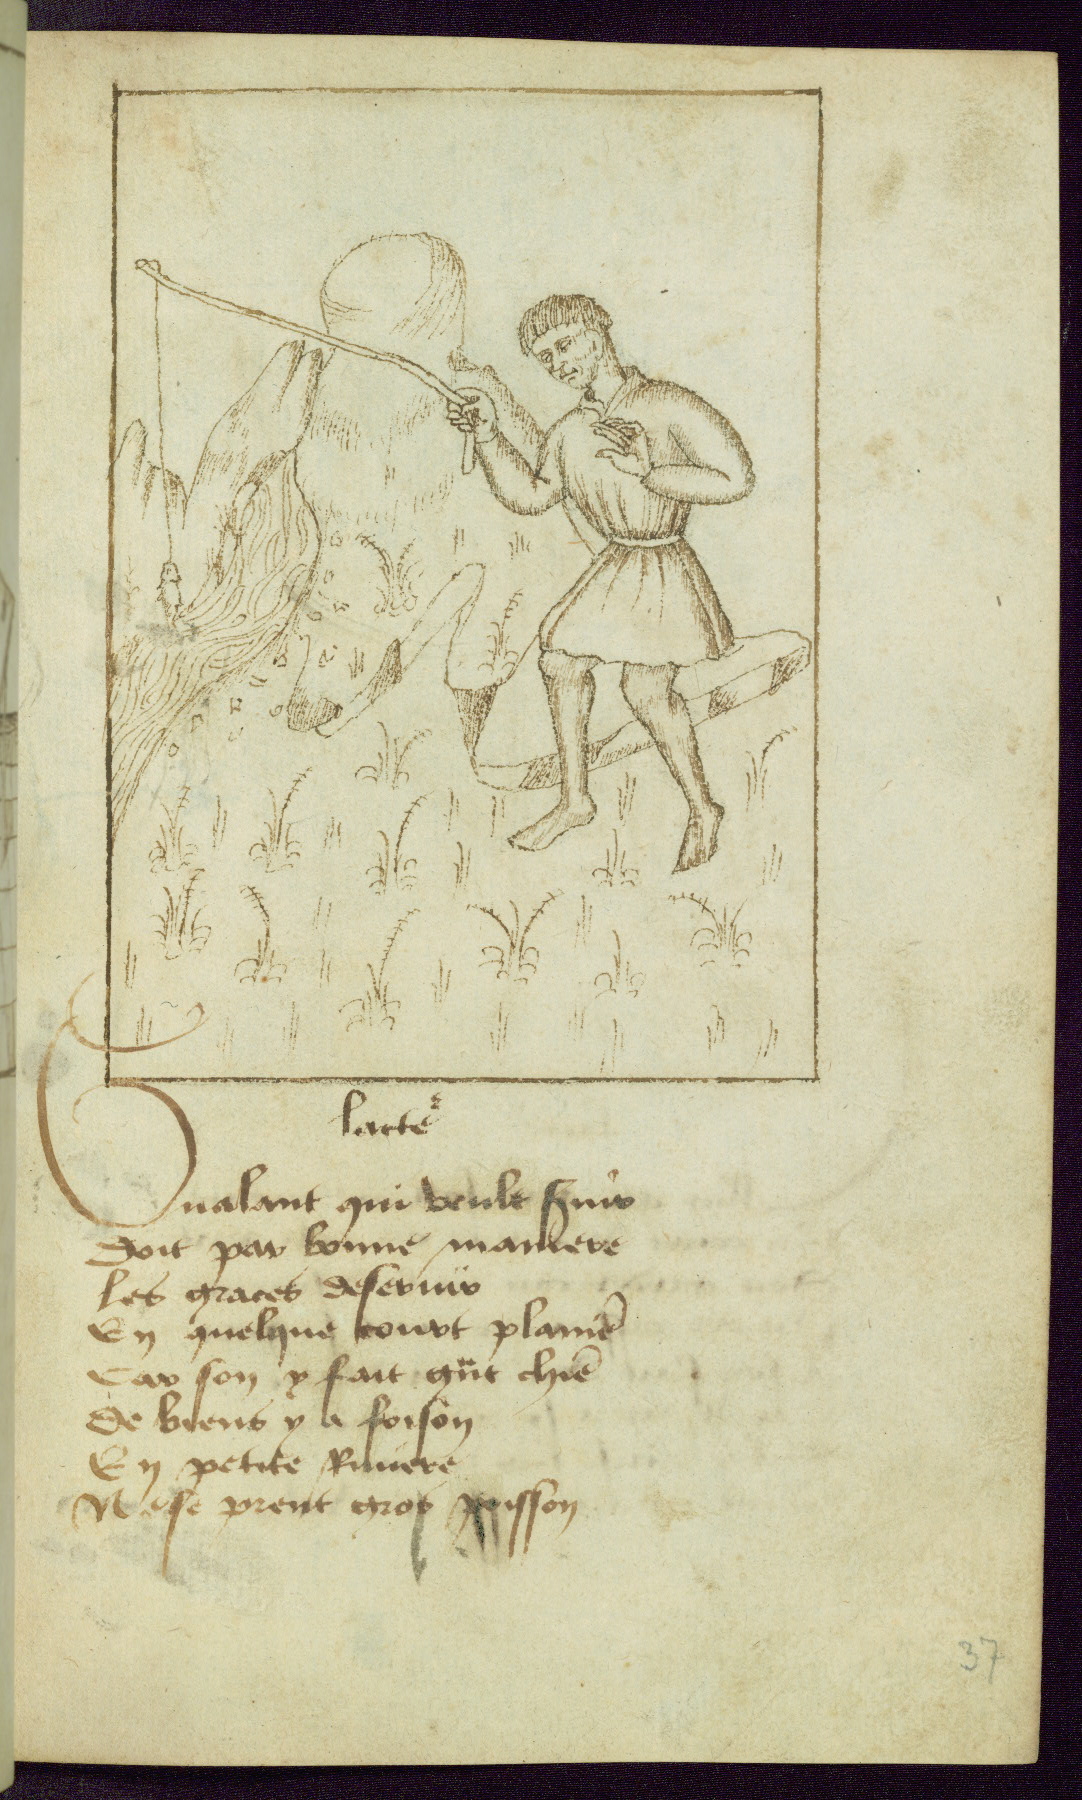 lacteˀ
Gualant qui veult seruir
Doit par bonne maniere
Les graces deseruir
En quelque court planiē
Car son y fait chiē
De biens y a foison
En petite Riuiere
Ne se prent gros poisson
37